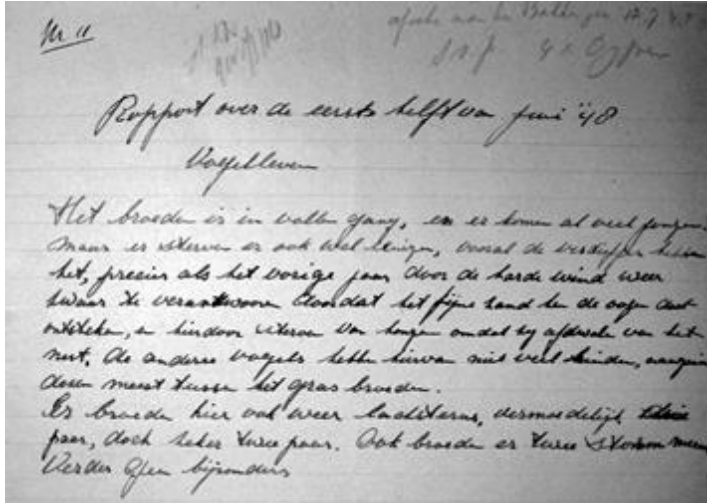 Nr 11
Rapport over de eerste helft van Juni '48
Vogelleven
Het broeden is in vollen gang, en er komen al veel jongen.
Maar er sterven er ook wel eenigen, vooral de visdiefjes hebben
het, precies als het vorige jaar door de harde wind weer
zwaar te verantwoorden doordat het fijne zand hen de oogen doet
ontsteken, en hierdoor sterven van honger omdat zij afdwalen van het
nest. De andere vogels hebben hiervan niet veel hinder, aangezien
dezen meest tussen het gras broeden.
Er broeden hier ook weer lachsterns, vermoedelijk drie
paar, doch zeker twee paar. Ook broeden er twee stormmeeuwen
Verder geen bijzonders